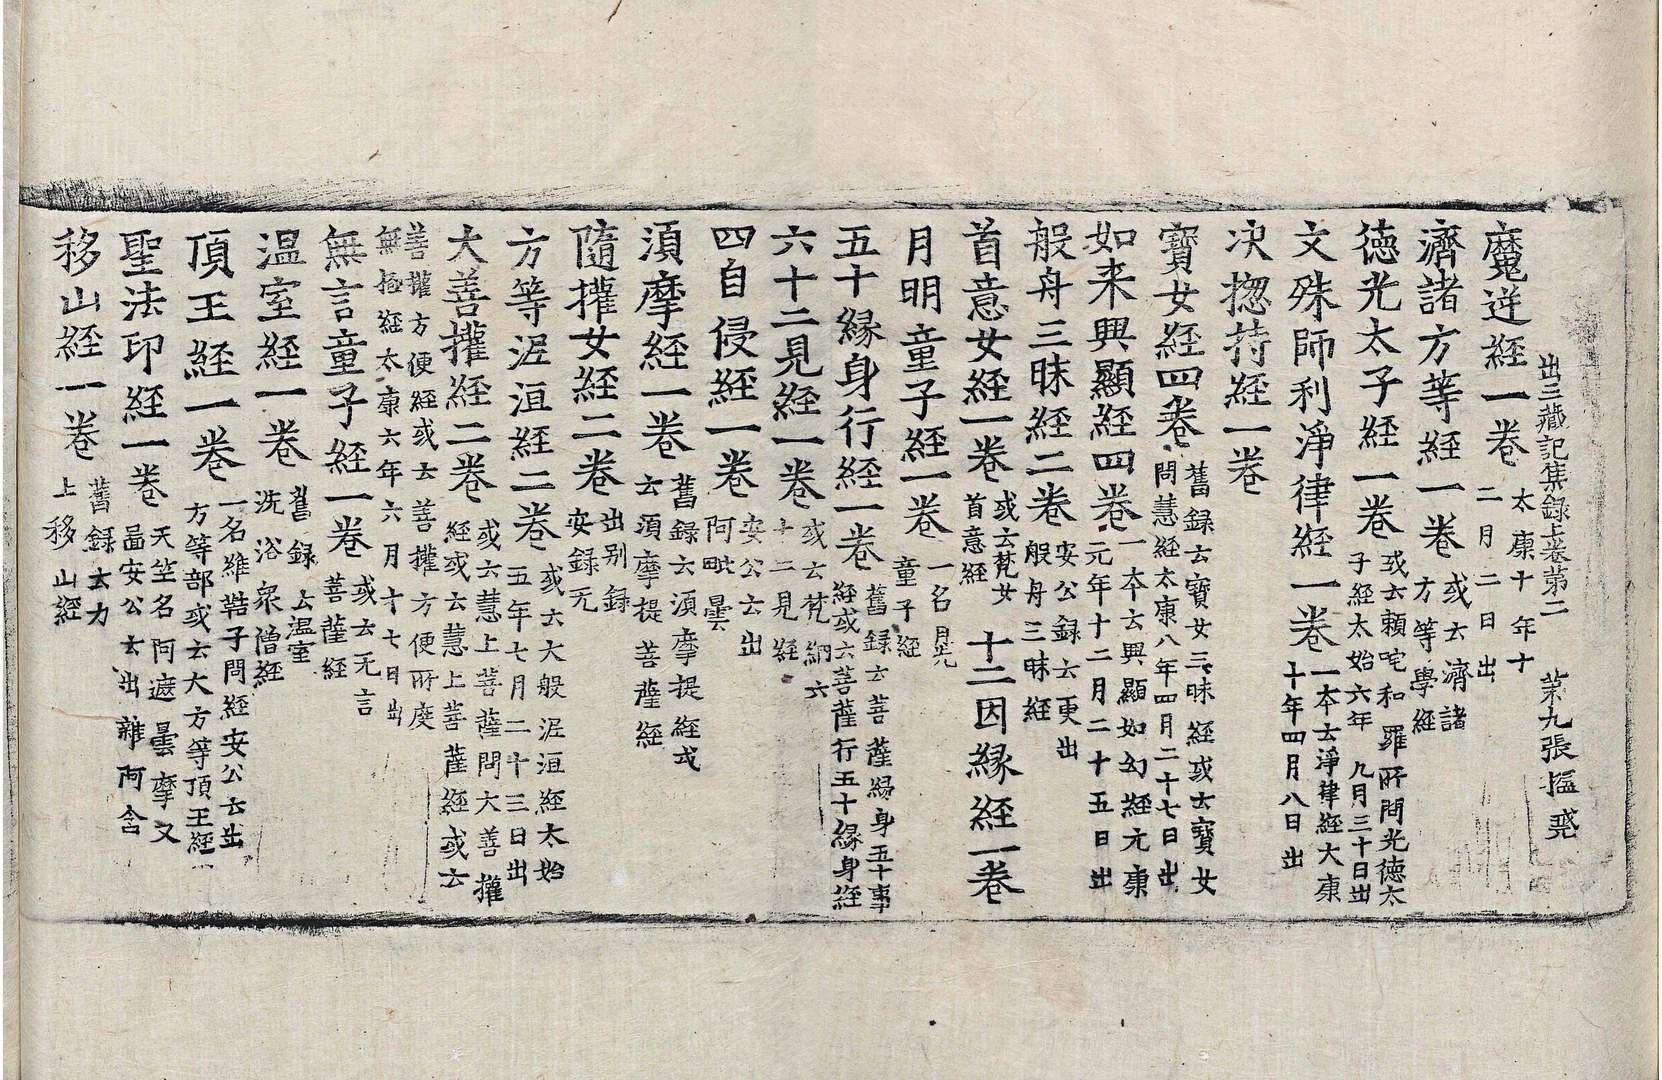 出三藏記集録上卷第二 苐九張 𢬵 㷼
魔逆経一巻 太康十年十二月二日出
濟諸方等経一巻 或云濟諸方等學経
徳光太子経一巻 或云頼吒和羅所問光徳太子経太始六年九月三十日出
文殊師利淨律経一巻 一本云淨律経太康十年四月八日出
决揔持経一巻
寶女経四巻 舊録云寶女三昧経或云寶女問慧経太康八年四月二十七日出
如来興顯経四巻 一本云興顯如幻経元康元年十二月二十五日出
般舟三昧経二巻 安公録云更出般舟三昧経
首意女経一巻 或云梵女首意経 十二因縁経一巻
月明童子経一巻 一名月光童子経
五十縁身行経一巻 舊録云菩薩縁身五十事経或云菩薩行五十縁身経
六十二見経一巻 或云梵網六十二見経
四自侵経一巻 安公云出阿毗曇
須摩経一巻 舊録云須摩提経或云須摩提菩薩経
隨權女経二巻 出别録安録无
方等泥洹経二巻 或云大般泥洹経太始五年七月二十三日出
大善權経二巻 或云慧上菩薩問大善權経或云慧上菩薩経或云
善權方便経或云善權方便所度無極経太康六年六月十七日出
無言童子経一巻 或云无言菩薩経
温室経一巻 舊録云温室洗浴衆僧経
頂王経一巻 一名維摩詰子問経安公云出方等部或云大方等頂王経
聖法印経一巻 天竺名阿遮曇摩又啚安公云出雜阿含
移山経一巻 舊録云力士移山経